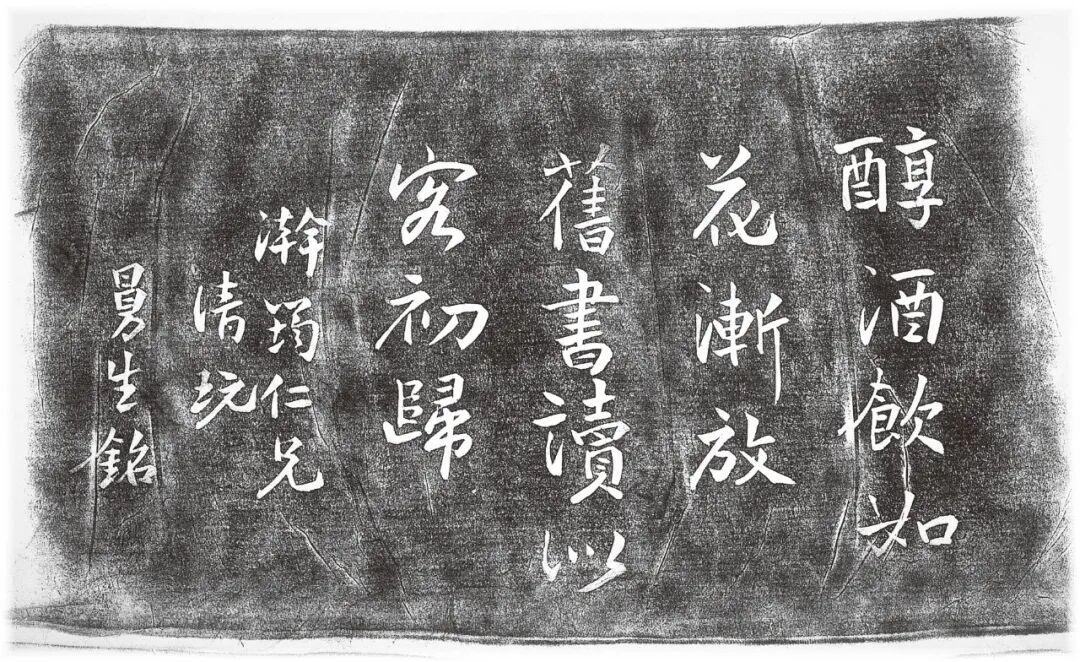 醇酒飲如
花漸放
舊書讀似
客初歸
仁兄
清玩
曼生銘